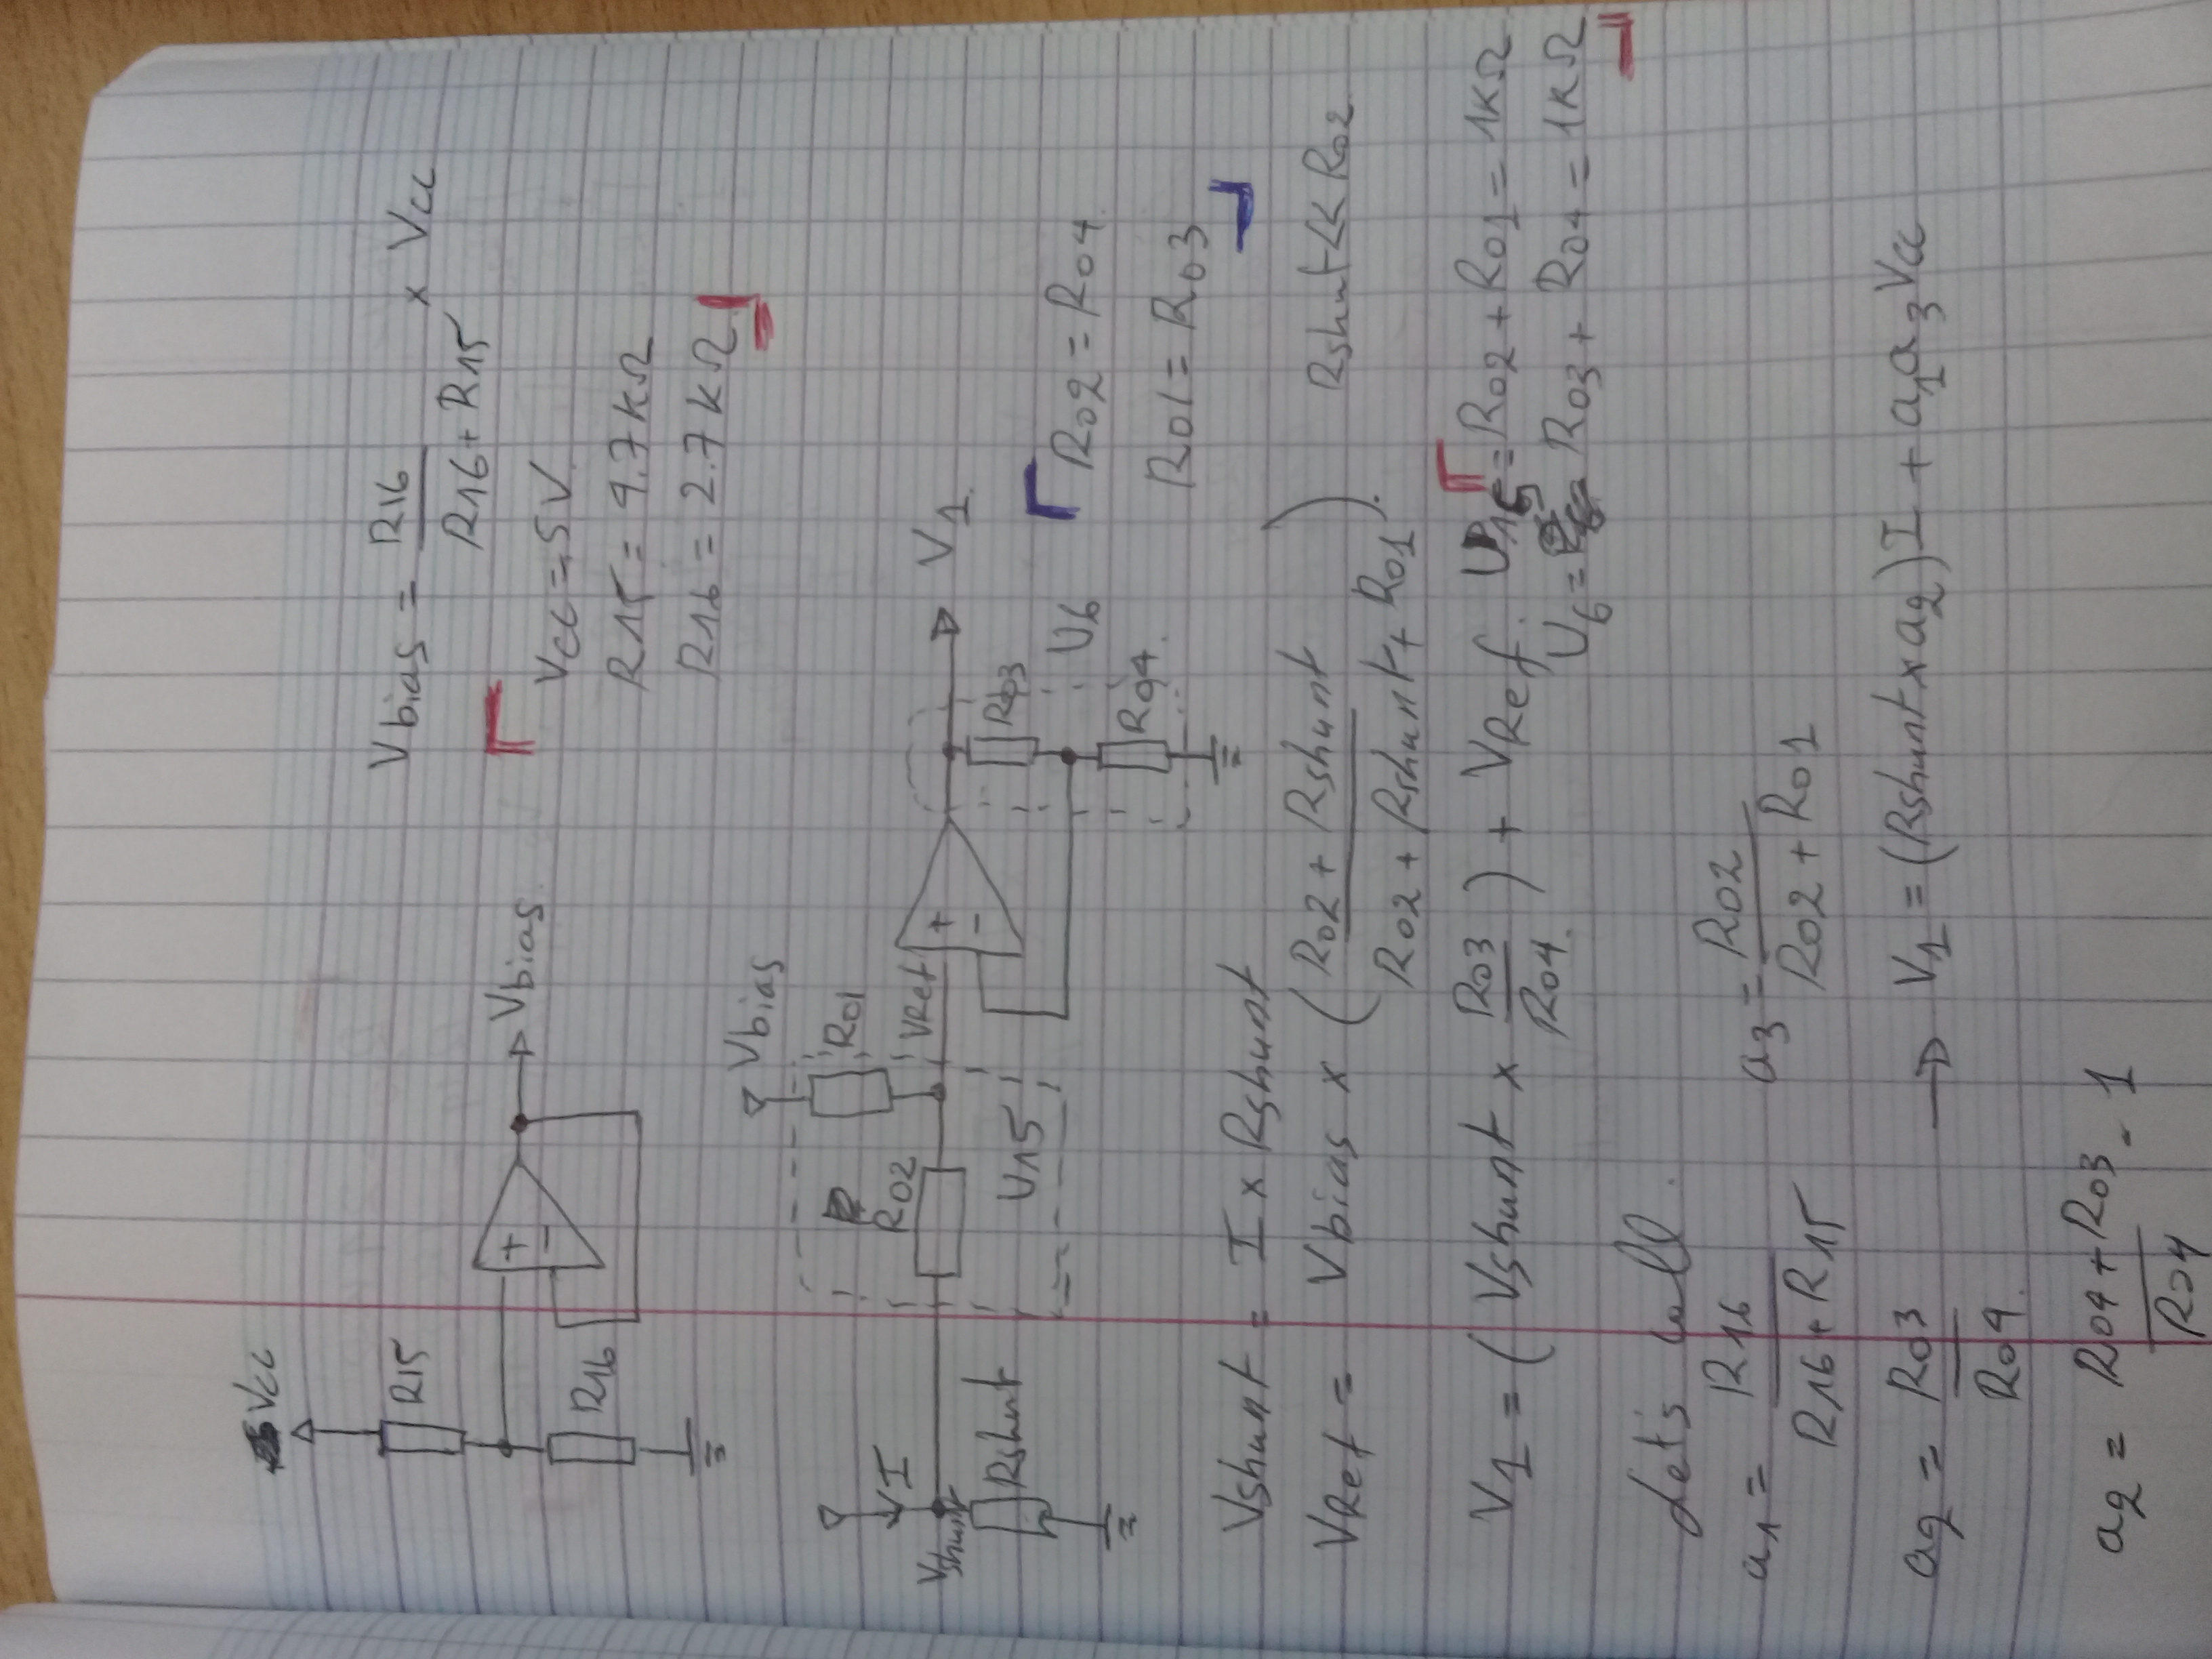 Vcc
R15
R16
Vbias
Vbias = R16 / (R16 + R15) × Vcc
Vcc = 5V.
R15 = 4.7kΩ
R16 = 2.7kΩ
+
-
Vbias
I
R02
R01
Vshunt
VRef
Rshunt
U15
+
-
V1
R03
U6
R04.
R02 = R04.
R01 = R03
Vshunt = I × Rshunt
VRef = Vbias × ((R02 + Rshunt) / (R02 + Rshunt + R01)). Rshunt << R02
V1 = (Vshunt × R03 / R04.) + VRef. U15 = R02 + R01 = 1kΩ
U6 = R03 + R04 = 1kΩ
Let's call.
a1 = R16 / (R16 + R15) a3 = R02 / (R02 + R01)
a2 = R03 / R04. → V1 = (Rshunt × a2)I + a1a3Vcc
a2 = (R04 + R03) / R04 - 1